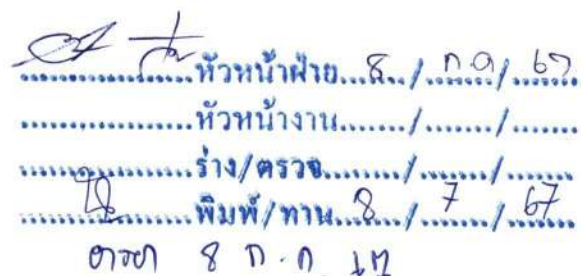 ................หัวหน้าฝ่าย...8.../ ก.ค / 67
................หัวหน้างาน......./......./.......
................ร่าง/ตรวจ......../......./.......
................พิมพ์/ทาน...8.../ 7 / 67
8 ก.ค 67